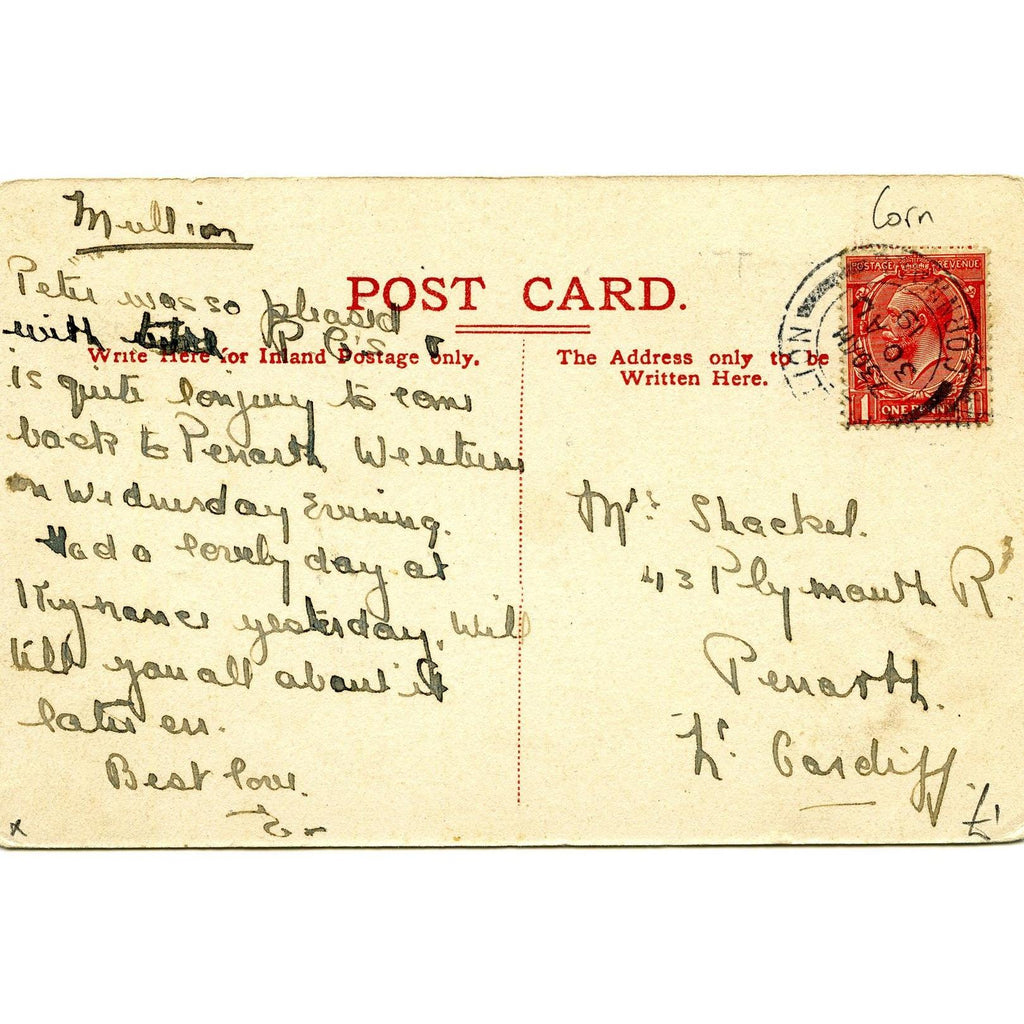 Mullion
Corn
POST CARD.
Peter was so pleased
with P C's &
Write Here for Inland Postage only.
The Address only to be
Written Here.
is quite longing to come
back to Penarth We return
on Wednesday Evening.
Had a lovely day at
Kynance yesterday. Will
tell you all about it
later on.
Best love.
E -
x
POSTAGE REVENUE
1 ONE PENNY 1
7.30PM
30
19
Mrs: Shackel.
43 Plymouth Rd
Penarth.
Nr. Cardiff.
£1